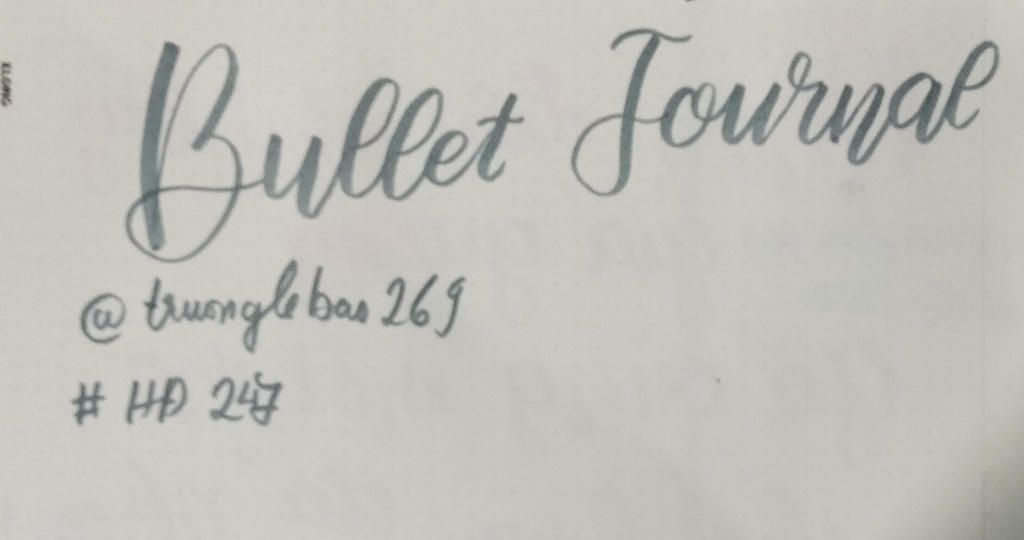 Bullet Journal
@truonglebao269
#HD 247